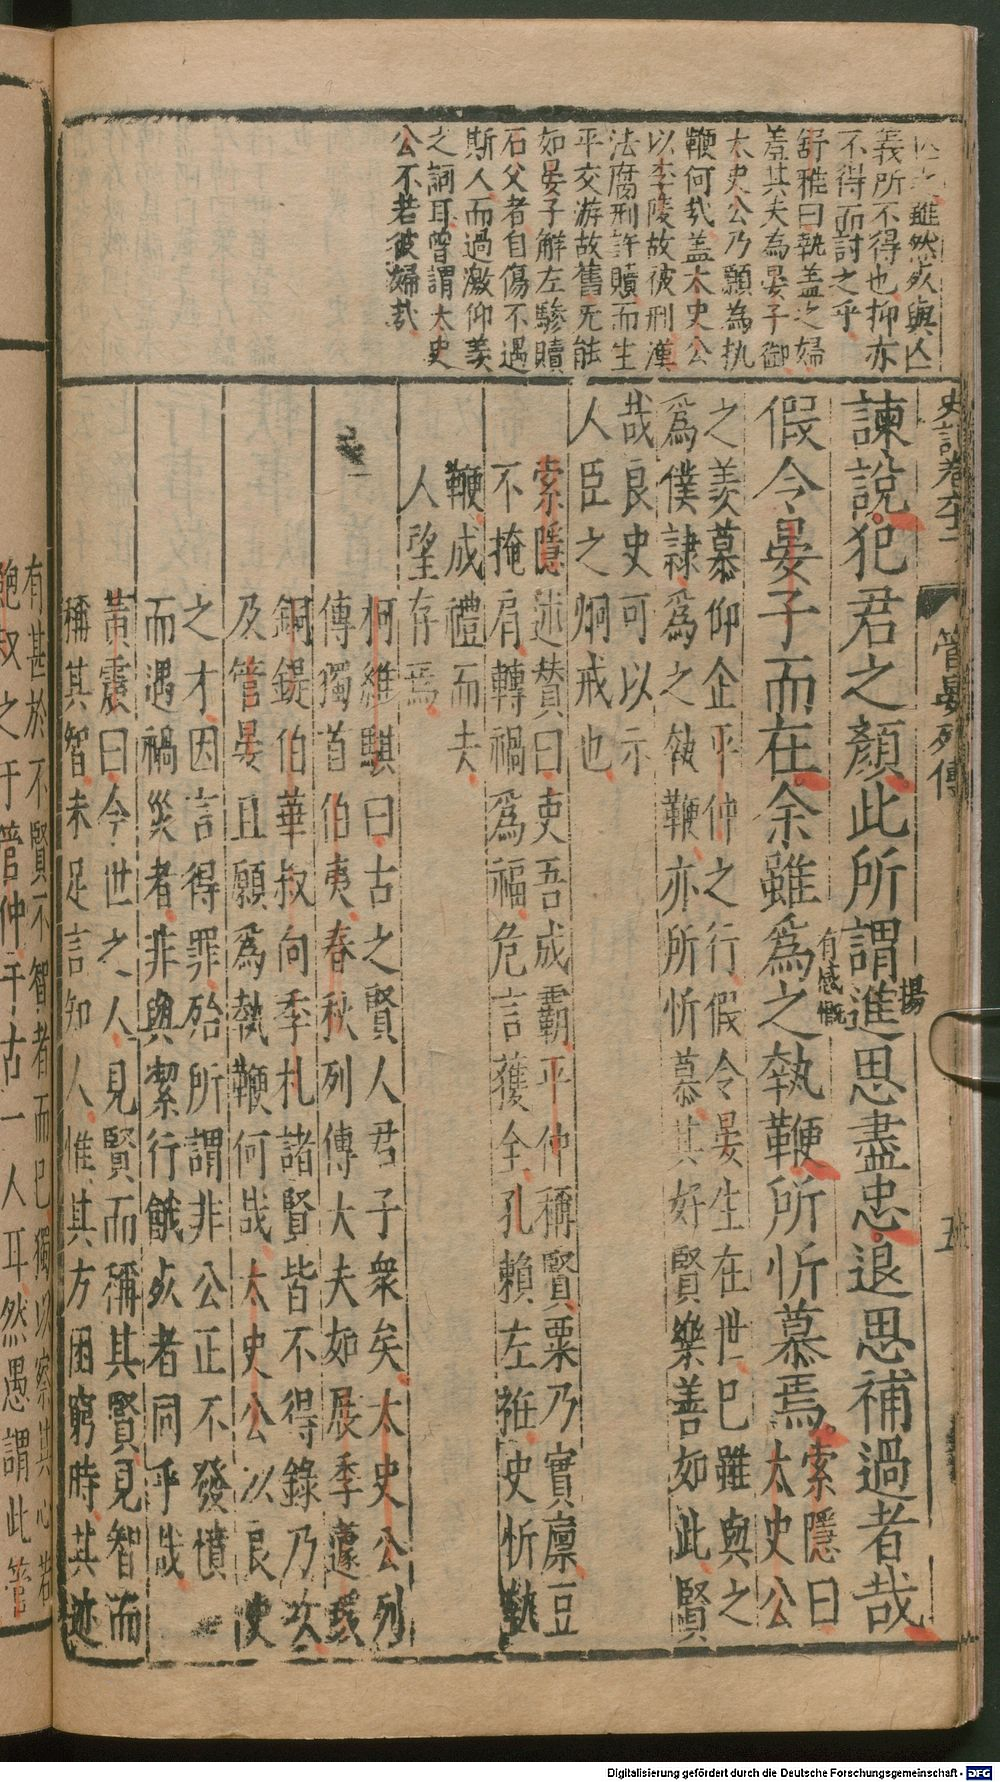 亡之雖然死與亡
義所不得也抑亦
不得而討之乎
舒雅曰執盖之婦
羞其夫為晏子御
太史公乃願為执
鞭何㢤盖太史公
以李陵故彼刑漢
法腐刑許贖而生
平交游故舊无能
如晏子解左驂贖
石父者自傷不遇
斯人而過激仰羨
之詞耳曾謂太史
公不若彼婦㢤
史記卷六十二
管晏列傳
五
諫說犯君之顏此所謂進思盡忠退思補過者哉
揚
假令晏子而在余雖爲之執鞭所忻慕焉
有感慨
索隱曰
太史公
之羨慕仰企平仲之行假令晏生在世已雖與之
爲僕隸爲之執鞭亦所忻慕其好賢樂善如此賢
哉良史可以示
人臣之炯戒也
索隱述贊曰吏吾成霸平仲稱賢粟乃實廩豆
不掩肩轉禍爲福危言獲全孔賴左袵史忻執
鞭成禮而夫
人望存焉
柯維騏曰古之賢人君子衆矣太史公列
傳獨首伯夷春秋列傳大夫如展季蘧瑗
銅鍉伯華叔向季札諸賢皆不得錄乃次
及管晏且願爲執鞭何㢤太史公以良史
之才因言得罪殆所謂非公正不發憤
而遇禍災者非與潔行餓死者同乎㢤
黃震曰今世之人見賢而稱其賢見智而
稱其智未足言知人惟其方困窮時其迹
有甚於不賢不智者而已獨以察其心若
鮑叔之于管仲千古一人耳然愚謂此管
Digitalisierung gefördert durch die Deutsche Forschungsgemeinschaft - DFG